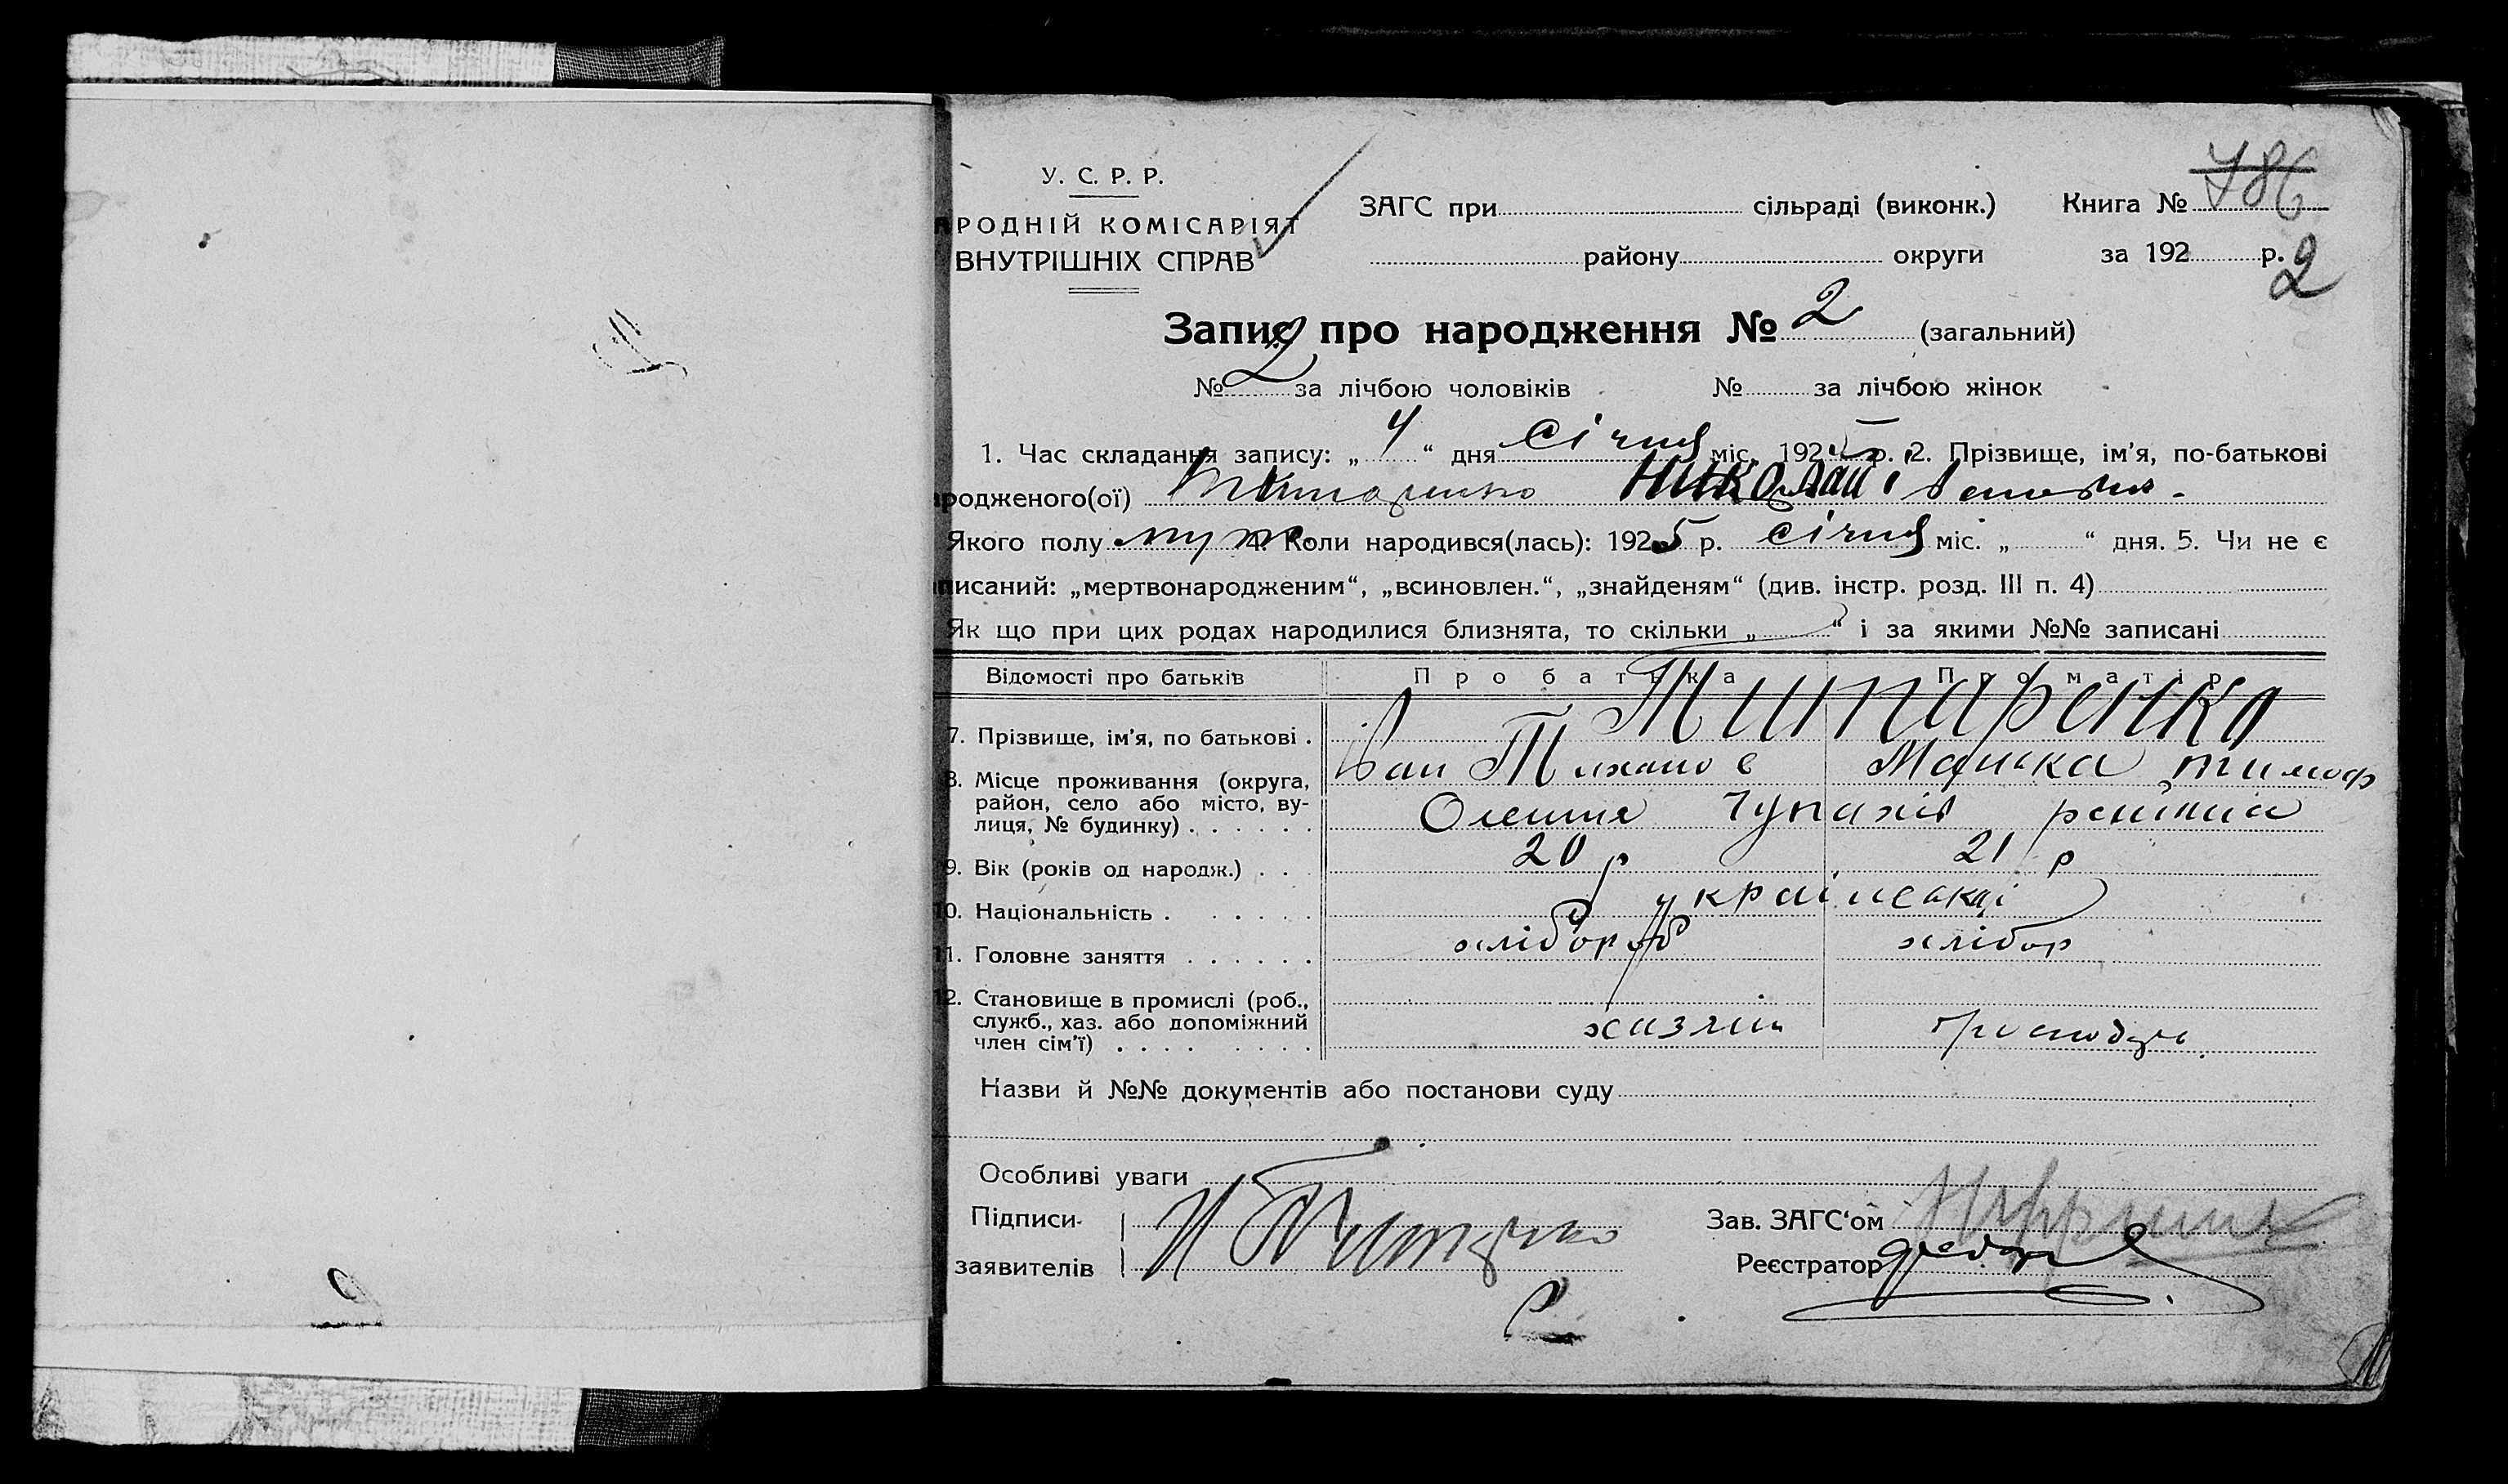 У. С. Р. Р.
РОДНІЙ КОМІСАРІЯТ
ВНУТРІШНІХ СПРАВ
ЗАГС при сільраді (виконк.) Книга № 786
району округи за 192 р.
2
Запис про народження № 2 (загальний)
№ 2 за лічбою чоловіків № за лічбою жінок
1. Час складання запису: „ 4 “ дня Січня міс. 1925 р. 2. Прізвище, ім'я, по-батькові
родженого(ої) Николай
Якого полу муж. 4. Коли народився(лась): 1925 р. Січня міс. „ “ дня. 5. Чи не є
писаний: „мертвонародженим“, „всиновлен.“, „знайденям“ (див. інстр. розд. III п. 4)
Як що при цих родах народилися близнята, то скільки „ “ і за якими №№ записані
Відомості про батьків Про батька Про матір
7. Прізвище, ім'я, по батькові . Титаренко
Іван Тихонов
8. Місце проживання (округа, район, село або місто, вулиця, № будинку) . . . . . . Олешня Чупахів
9. Вік (років од народж.) . . . 20 р 21 р
10. Національність . . . . . . українські
11. Головне заняття . . . . . . хлібороб хлібор
12. Становище в промислі (роб., служб., хаз. або допоміжний член сім'ї) . . . . . . . . хазяїн
Назви й №№ документів або постанови суду
Особливі уваги
Підписи
заявителів
Зав. ЗАГС'ом
Реєстратор